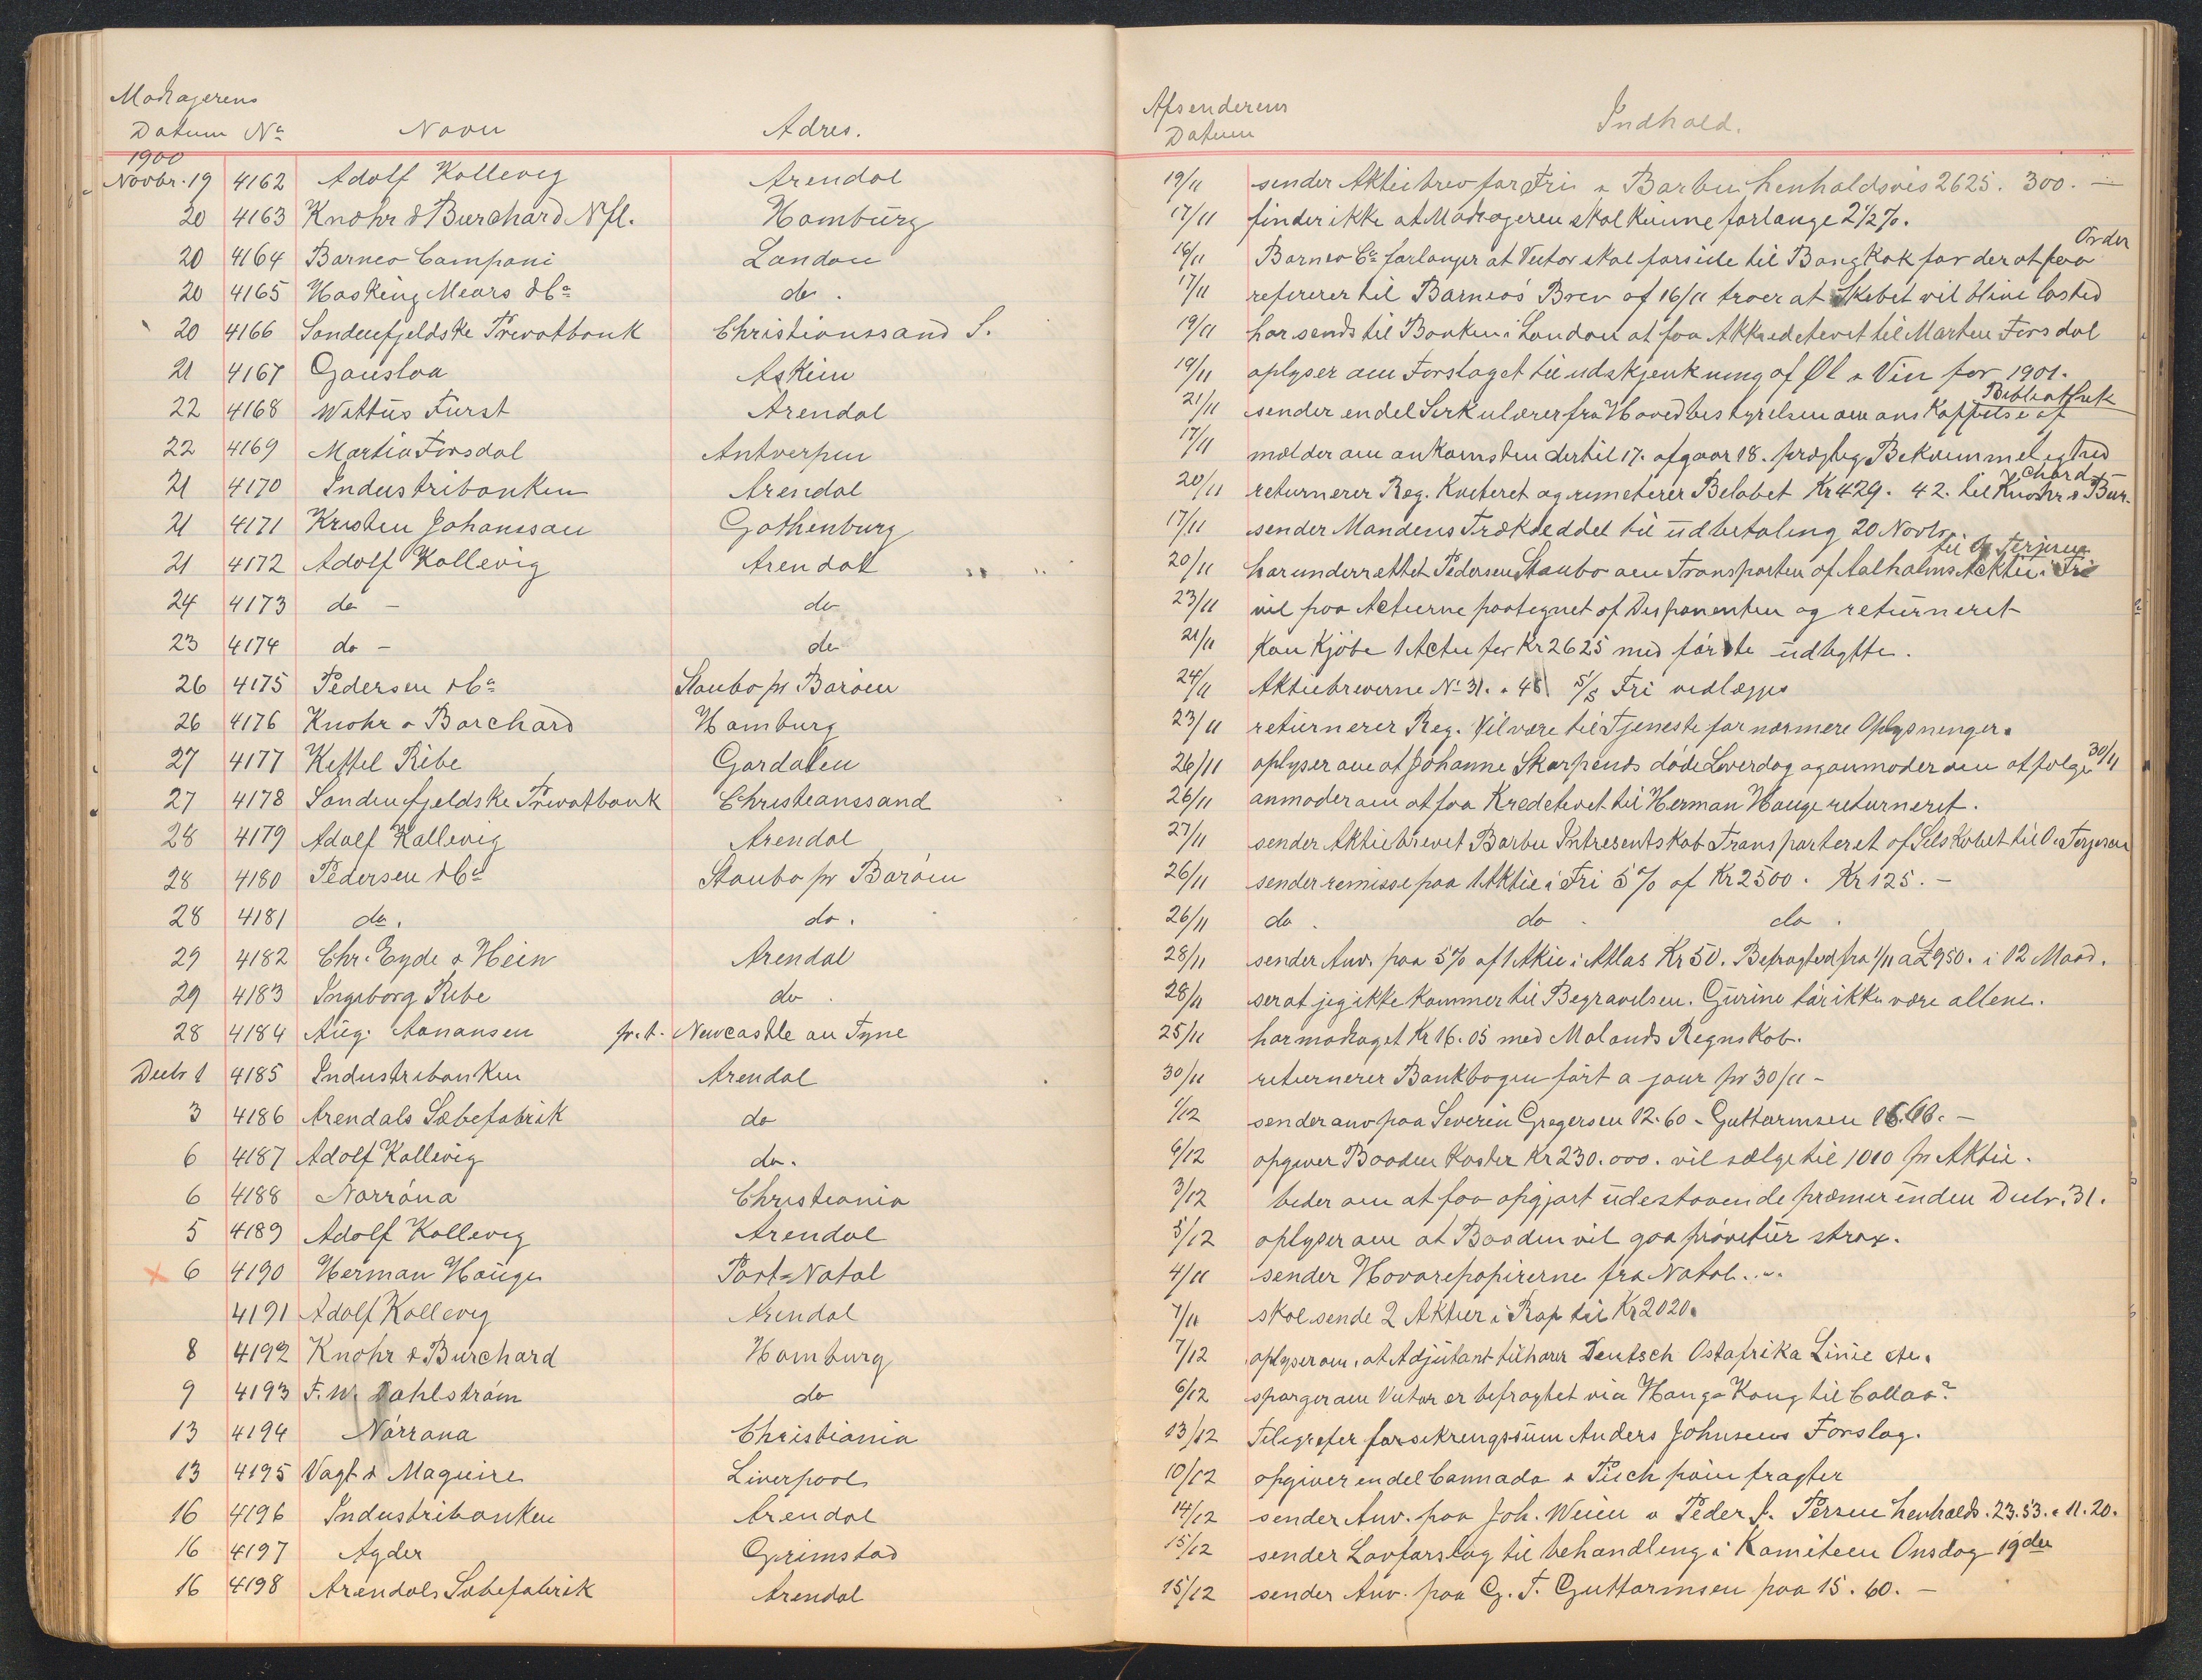 Modtagerens
Datum No Navn Adres.
1900
Novbr. 19 4162 Adolf Kallevig Arendal
20 4163 Knøhr & Burchard Nfl. Hamburg
20 4164 Barneo Campani London
20 4165 Hasking Mears & Co do.
20 4166 Søndenfjeldske Privatbank Christianssand S.
21 4167 Gauslaa Askim
22 4168 Wattus Furst Arendal
22 4169 Martin Forsdal Antverpen
21 4170 Industribanken Arendal
21 4171 Kristen Johanssan Gothenburg
21 4172 Adolf Kallevig Arendal
24 4173 do – do
23 4174 do – do
26 4175 Pedersen & Co Staubo pr Barøen
26 4176 Knohr & Borchard Hamburg
27 4177 Kettel Ribe Gardalen
27 4178 Søndenfjeldske Privatbank Christianssand
28 4179 Adolf Kallevig Arendal
28 4180 Pedersen & Co Staubo pr Barøen
28 4181 do. do.
29 4182 Chr. Eyde & Hein Arendal
29 4183 Ingeborg Ribe do.
28 4184 Aug. Aanansen p.t. Newcastle an Tyne
Decbr 1 4185 Industribanken Arendal
3 4186 Arendals Sæbefabrik do
6 4187 Adolf Kallevig do.
6 4188 Norróna Christiania
5 4189 Adolf Kallevig Arendal
x 6 4190 Herman Hauge Port-Natal
4191 Adolf Kallevig Arendal
8 4192 Knøhr & Burchard Hamburg
9 4193 F. W. Dahlstrøm do
13 4194 Nórrana Christiania
13 4195 Vagt & Maguire Liverpool
16 4196 Industribanken Arendal
16 4197 Agder Grimstad
16 4198 Arendals Sæbefabrik Arendal
Afsenderens
Datum Indhold.
19/11 sender Aktiebrev for Fri & Barbu henholdsvis 2625. 300. –
17/11 finder ikke at Modtageren skal kunne forlange 2 1/2 %.
Order
16/11 Barneo Co forlanger at Victor skal forseile til Bangkok for der at faa
17/11 refererer til Barneos Brev af 16/11 troer at Skebet vil blive lasted
19/11 har sendt til Banken i London at faa Akkreditivet til Marten Forsdal
19/11 oplyser om Forslaget til udskjenkning af Øl & Vin for 1901.
Bibliothek
21/11 sender endel Serkulærer fra Hovedbestyrelsen om anskaffelse af
17/11 melder om ankomsten dertil 17. afgaar 18. prægtig Bekvemmelighed
chard
20/11 returnerer Reg. Kviteret og rimeterer Belobet Kr 429. 42. til Knohr & Bur-
17/11 sender Mandens Trækseddel til udbetaling 20 Novbr.
til O. Terjesen
20/11 har underrettet Pedersen Staubo om Transporten af Aalholms Aktie i Fri
23/11 vil faa Actierne paategnet af Disponenten og returneret
21/11 Kan Kjøbe 1 Actie for Kr 2625 med første udbytte.
24/11 Aktiebreverne No 31. & 45 S/S Fri vedlægges
23/11 returnerer Reg. Vil være til Tjeneste for nærmere Oplysninger.
26/11 oplyser om at Johanne Skarpends døde Løverdag og anmoder om at følge 30/11
26/11 anmoder om at faa Kreditivet til Herman Hauge returneret.
27/11 sender Aktiebrevet Barbu Intresentskab Transparteret af Selskabet til O. Terjesen
26/11 sender remisse paa 1 Aktie i Fri 5 % af Kr 2500. Kr 125. –
26/11 do. do. do.
28/11 sender Anv. paa 5 % af 1 Akie i Atlas Kr 50. Befragted fra 1/11 a £ 950. i 12 Maad.
28/11 ser at jeg ikke kommer til Begravelsen. Gurine tør ikke være allene.
25/11 har modtaget Kr 16.05 med Molands Regnskab.
30/11 returnerer Bankbogen ført a jour pr 30/11 –
1/12 sender anv paa Severin Gregersen 12.60 – Guttormsen
6/12 opgiver Baaden Koster Kr 230.000. vil sælge til 1010 pr Aktie.
3/12 beder om at faa opgjørt udestaaende præmier inden Decbr. 31.
5/12 oplyser om at Baaden vil gaa prøvetur strax.
4/11 sender Havarepapirerne fra Natal...
7/11 skal sende 2 Aktier i Rap til Kr 2020.
7/12 oplyser om, at Adjutant tilhører Deutsch Ostafrika Linie etc.
6/12 spørger om Victor er befragtet via Hang-Kong til Callao?
13/12 Telegrefer forsikrengssum Anders Johnsens Forslag.
10/12 opgiver endel Cannada & Pitch pain fragter
14/12 sender Anv. paa Joh. Weien & Peder J. Persen henholds. 23.53. & 11.20.
15/12 sender Lovforslag til behandling i Kamiteen Onsdag 19den
15/12 sender Anv. paa G. T. Guttormsen paa 15.60. –